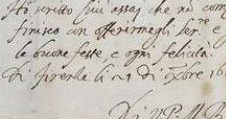 Ho scritto più assai che nõ com
finisco con offerirmegli ser.re e
le buone feste, e ogni felicità.
Di firenze li di xbre 16
Di V P M R